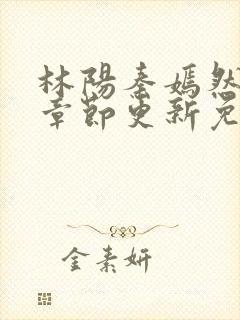 林陽秦嫣然
章節更新免
金素妍